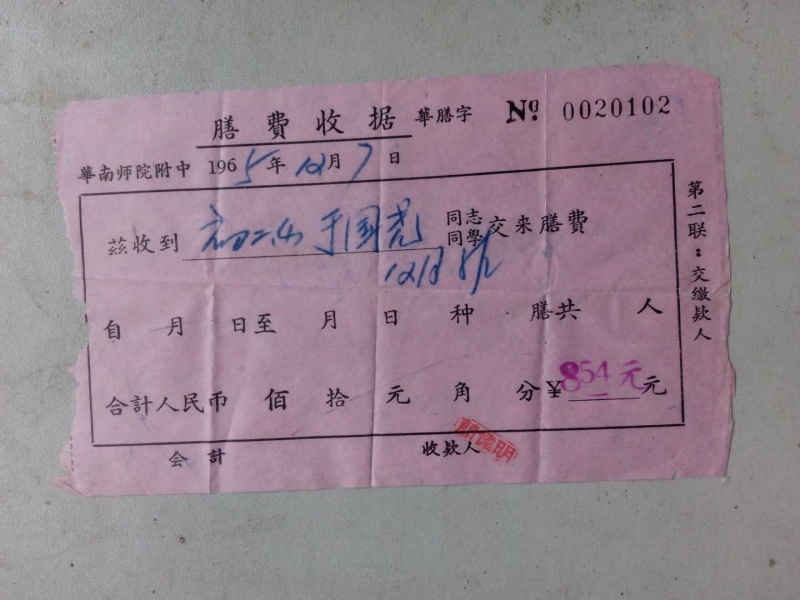 膳費收据 華膳字 Nº 0020102
華南师院附中 1965年12月7日
茲收到 于国尧 同志 同學 交来膳費
12月
自 月 日至 月 日 种 膳共 人
合計人民币 佰 拾 元 角 分 ¥854元元
会計 收款人
第二联：交繳款人